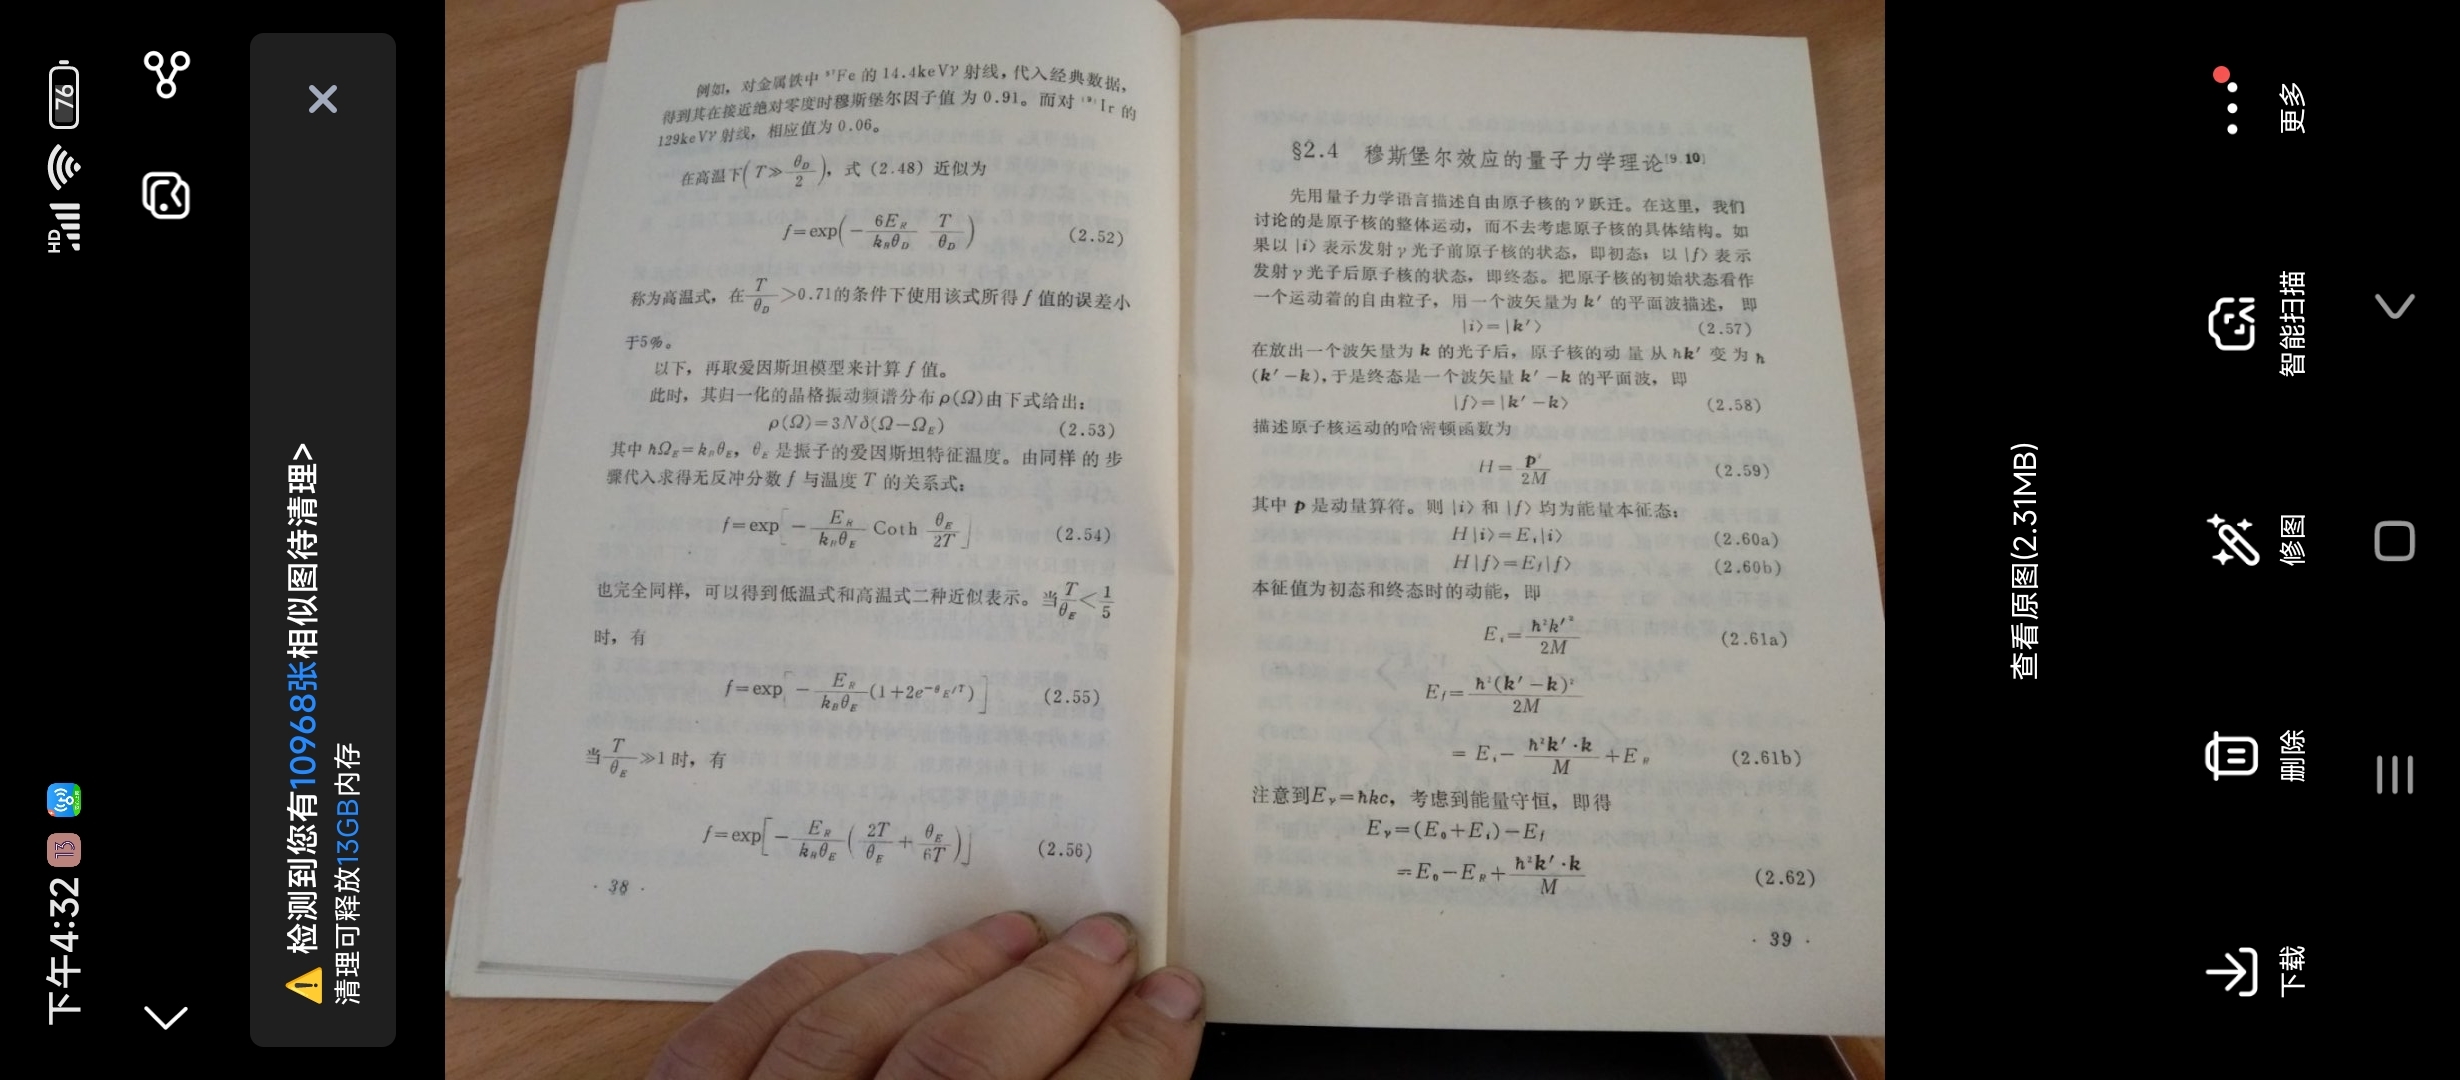 下午4:32
HD
76
检测到您有10968张相似图待清理>
清理可释放13GB内存
例如，对金属铁中 ⁵⁷Fe 的 14.4keVγ 射线，代入经典数据，
得到其在接近绝对零度时穆斯堡尔因子值为 0.91。而对 ¹⁹¹Ir 的
129keVγ 射线，相应值为 0.06。
在高温下(T≫θ_D/2)，式 (2.48) 近似为
f=exp(−6E_R/k_Bθ_D T/θ_D) (2.52)
称为高温式，在T/θ_D>0.71的条件下使用该式所得 f 值的误差小
于5%。
以下，再取爱因斯坦模型来计算 f 值。
此时，其归一化的晶格振动频谱分布 ρ(Ω)由下式给出：
ρ(Ω)=3Nδ(Ω−Ω_E) (2.53)
其中 ħΩ_E=k_Bθ_E，θ_E 是振子的爱因斯坦特征温度。由同样的步
骤代入求得无反冲分数 f 与温度 T 的关系式：
f=exp[−E_R/k_Bθ_E Coth θ_E/2T] (2.54)
也完全同样，可以得到低温式和高温式二种近似表示。当T/θ_E<1/5
时，有
f=exp[−E_R/k_Bθ_E(1+2e^−θ_E/T)] (2.55)
当T/θ_E≫1 时，有
f=exp[−E_R/k_Bθ_E(2T/θ_E+θ_E/6T)] (2.56)
· 38 ·
§2.4 穆斯堡尔效应的量子力学理论[9.10]
先用量子力学语言描述自由原子核的 γ 跃迁。在这里，我们
讨论的是原子核的整体运动，而不去考虑原子核的具体结构。如
果以 |i⟩ 表示发射 γ 光子前原子核的状态，即初态；以 |f⟩ 表示
发射 γ 光子后原子核的状态，即终态。把原子核的初始状态看作
一个运动着的自由粒子，用一个波矢量为 k′ 的平面波描述，即
|i⟩=|k′⟩ (2.57)
在放出一个波矢量为 k 的光子后，原子核的动量从 ħk′ 变为 ħ
(k′−k)，于是终态是一个波矢量 k′−k 的平面波，即
|f⟩=|k′−k⟩ (2.58)
描述原子核运动的哈密顿函数为
H=p²/2M (2.59)
其中 p 是动量算符。则 |i⟩ 和 |f⟩ 均为能量本征态：
H|i⟩=E_i|i⟩ (2.60a)
H|f⟩=E_f|f⟩ (2.60b)
本征值为初态和终态时的动能，即
E_i=ħ²k′²/2M (2.61a)
E_f=ħ²(k′−k)²/2M
= E_i−ħ²k′·k/M+E_R (2.61b)
注意到E_γ=ħkc，考虑到能量守恒，即得
E_γ=(E_0+E_i)−E_f
=E_0−E_R+ħ²k′·k/M (2.62)
· 39 ·
查看原图(2.31MB)
下载
删除
修图
智能扫描
更多